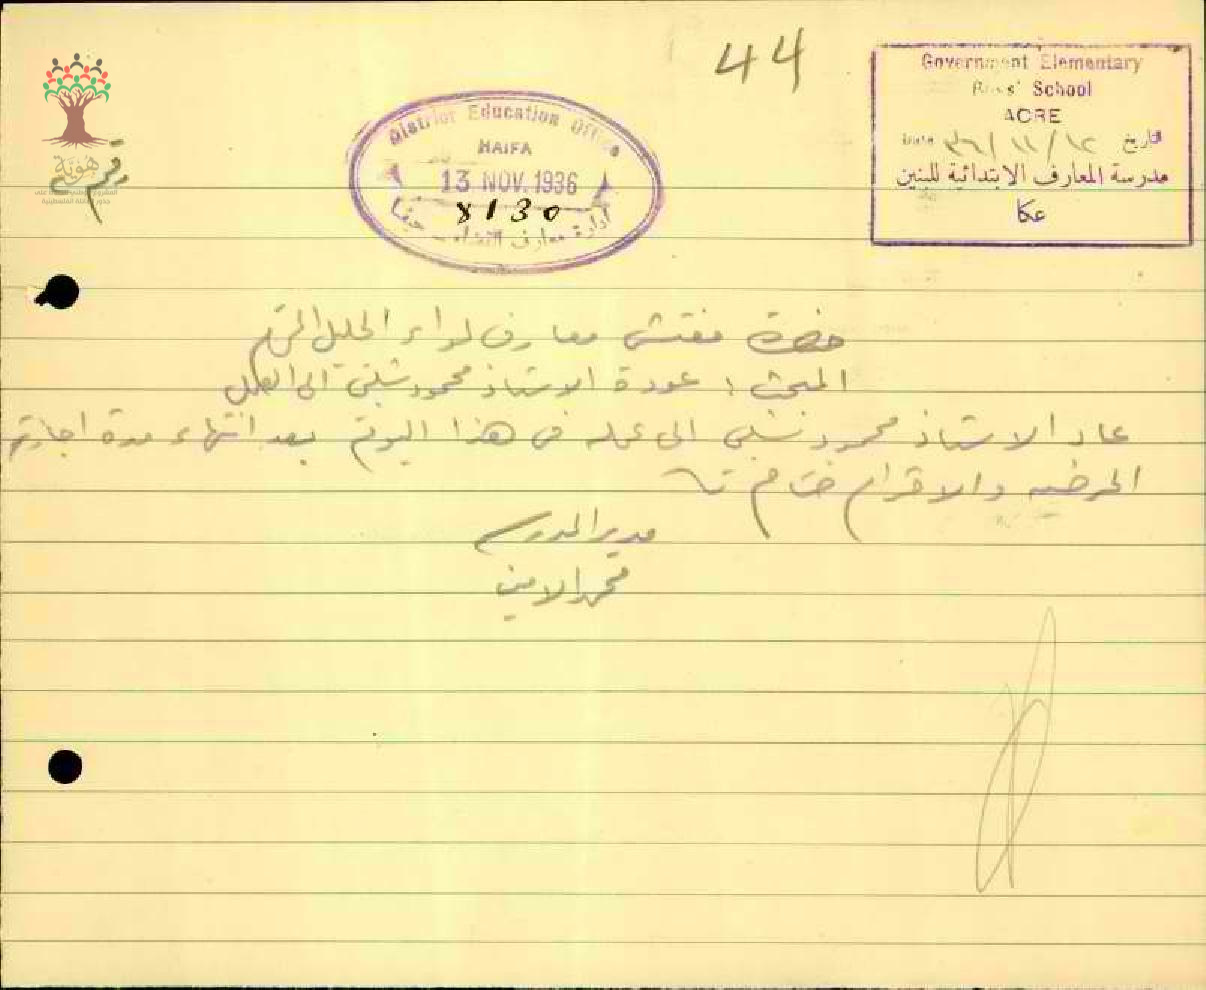 44
Government Elementary
Boys' School
ACRE
Date ٣٦/١١/١٢ تاريخ
مدرسة المعارف الابتدائية للبنين
عكا
District Education Office
HAIFA
13 NOV. 1936
8130
ادارة معارف القضاء حيفا
هويّة
رقم
حضرة مفتش معارف لواء الجليل المحترم
المبحث : عودة الاستاذ محمود شلبي الى العمل
عاد الاستاذ محمود شلبي الى عمله في هذا اليوم بعد انتهاء مدة اجازته
المرضيه والاحترام ختام
مدير المدرسة
محمد الامين